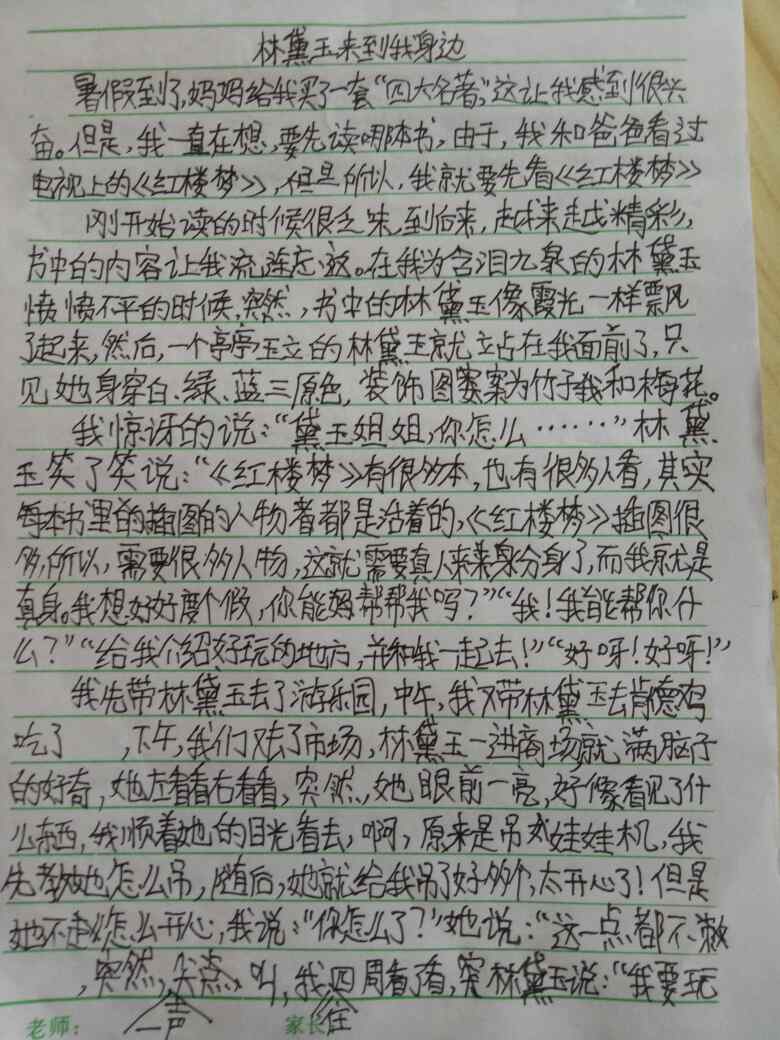 林黛玉来到我身边
暑假到了,妈妈给我买了一套“四大名著”,这让我感到很兴
奋。但是,我一直在想,要先读哪本书,由于,我和爸爸看过
电视上的《红楼梦》,但是所以,我就要先看《红楼梦》
刚开始读的时候很乏味,到后来,越来越精彩,
书中的内容让我流连忘返。在我为含泪九泉的林黛玉
愤愤不平的时候,突然,书中的林黛玉像霞光一样飘
了起来,然后,一个亭亭玉立的林黛玉就站在我面前了,只
见她身穿白、绿、蓝三原色,装饰图案为竹子我和梅花。
我惊讶的说:“黛玉姐姐,你怎么……”林黛
玉笑了笑说:“《红楼梦》有很多本,也有很多人看,其实
每本书里的插图的人物者都是活着的,《红楼梦》插图很
多,所以,需要很多人物,这就需要真人来亲身分身了,而我就是
真身。我想好好度个假,你能帮帮我吗?”“我!我能帮你什
么?”“给我介绍好玩的地方,并和我一起去!”“好呀!好呀!”
我先带林黛玉去了游乐园,中午,我又带林黛玉去肯德鸡
吃了,下午,我们又去了市场,林黛玉一进商场就满脑子
的好奇,她左看看右看看,突然,她眼前一亮,好像看见了什
么东西,我顺着她的目光看去,啊,原来是吊式娃娃机,我
先教她怎么吊,随后,她就给我吊了好多个,太开心了!但是
她不是怎么开心,我说:“你怎么了?”她说:“这一点都不
,突然,尖叫,我四周看了看,突林黛玉说:“我要玩
老师: 一声 家长 住